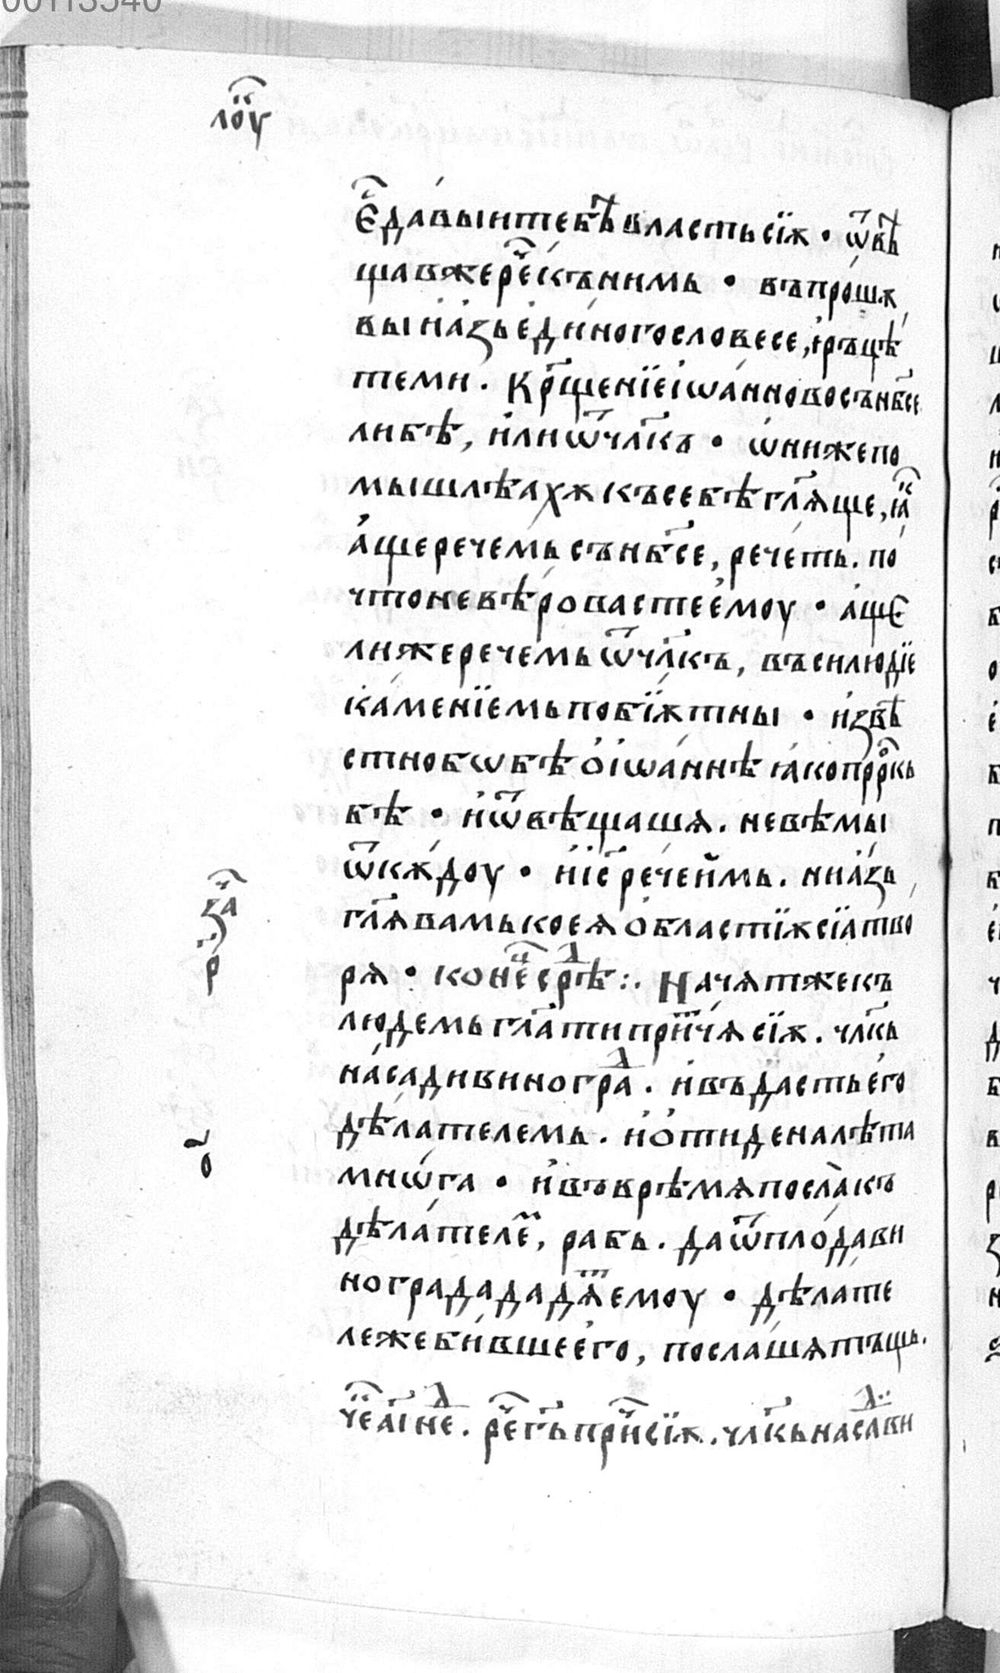 00113540
лоу҃к
Є҆давы и тебѣ власть сїѫ · ѿвѣ
щав же рече къ нимь · въпрошѫ
вы и азь единого словесе, и рьцѣ
те ми . Кр҃щенїе іѡанново съ нб҃се
ли бѣ, или ѿ чл҃къ · ѡни же по
мышлѣахѫ къ себѣ гл҃ѧще, ꙗк
аще речемь съ нб҃се, речеть . по
что не вѣровасте емоу · аще
ли же речемь ѿ чл҃къ, въси людїе
каменїемь побїѫт ны · извѣ
стно бѡ бѣ о іѡаннѣ ꙗко пррⷪ҇кь
бѣ · и ѿвѣщашѧ . не вѣмы
ѿкѫдоу · и іс҃ рече имь . ни азь
гл҃ѧ вамь коеѧ областїѫ сїа тво
рѧ · конеⷰ҇ срⷣѣ :. Начѧт же къ
людемь гл҃ати притчѧ сїѫ . чл҃кь
насади виноградⷣ . и въдасть его
дѣлателемь . и отиде на лѣта
мнѡга · и въ врѣмѧ посла къ
дѣлателеⷨ, рабь . да ѿ плода ви
нограда дадѧⷮ емоу · дѣлате
ле же бивше его, послашѧ тъщь.
зач
р
о
чⷭ҇е аі неⷣ . речⷱ҇ гь приⷱ҇ сїѫ . чл҃кь насаⷣ ви